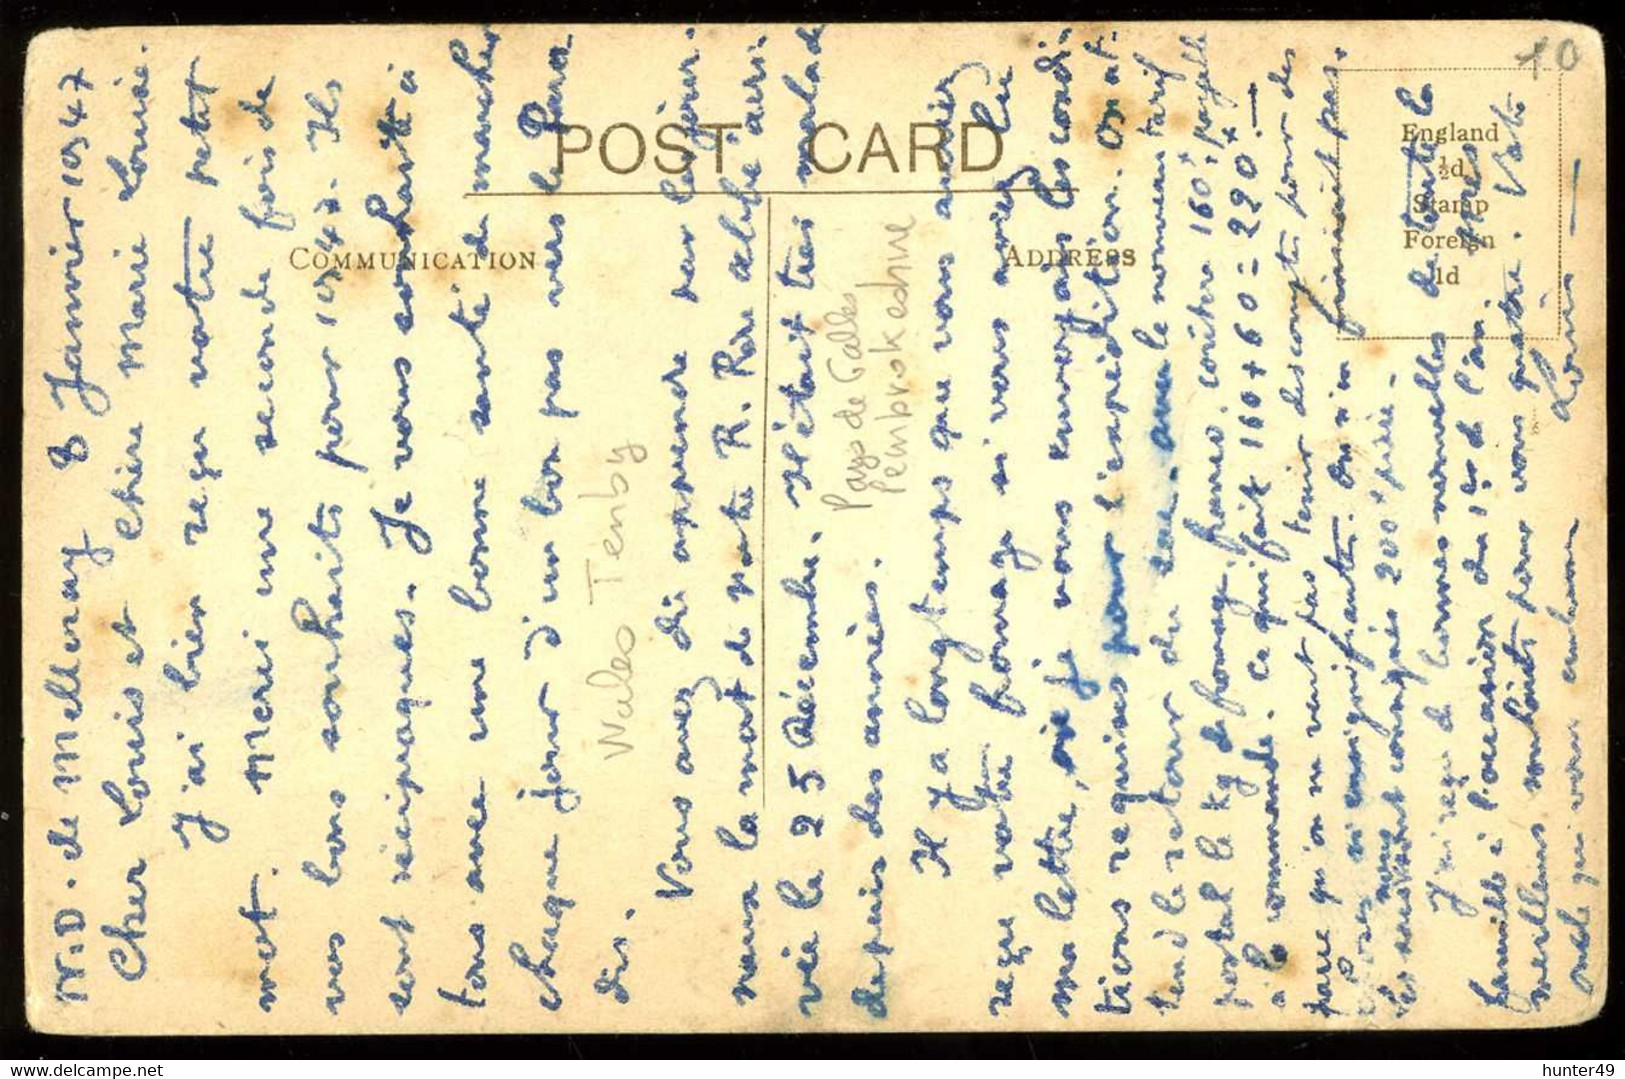 N.D. de Melleray 8 Janvier 1947
Cher Louis et Chère Marie Louise.
J'ai bien reçu votre petit
mot. Merci une seconde fois de
vos bons souhaits pour 1947. Ils
sont réciproques. Je vous souhaite à
tous avec une bonne santé de marcher
chaque jour d'un bon pas vers le Para-
dis.
Vous avez dû apprendre par le jour-
naux la mort de notre R. Père abbé arri-
vée le 25 décembre. Il était très malade
depuis des années.
Il y a longtemps que vous auriez
reçu votre fromage si vous aviez lu
ma lettre, où je vous envoyais les condi-
tions requises pour l'expédition. On at-
tend le retour du sac avec le nouveau tarif
postal le kg de fromage, franco, coûtera 160f payable
à la commande. Ce qui fait 160 + 60 = 220f. —
parce qu'on ne veut pas tenir des comptes pour des
choses si insignifiantes. On n'en finirait pas.
nous
les avions comptés 200f pièce.
J'ai reçu de bonnes nouvelles de toute la
famille à l'occasion du 1er de l'an.
meilleurs souhaits pour vous quatre. Votre
oncle qui vous embrasse Louis —
POST CARD
COMMUNICATION
ADDRESS
England
½d
Stamp
Foreign
1d
10
Wales Tenby
Pays de Galles
Pembrokeshire
hunter49